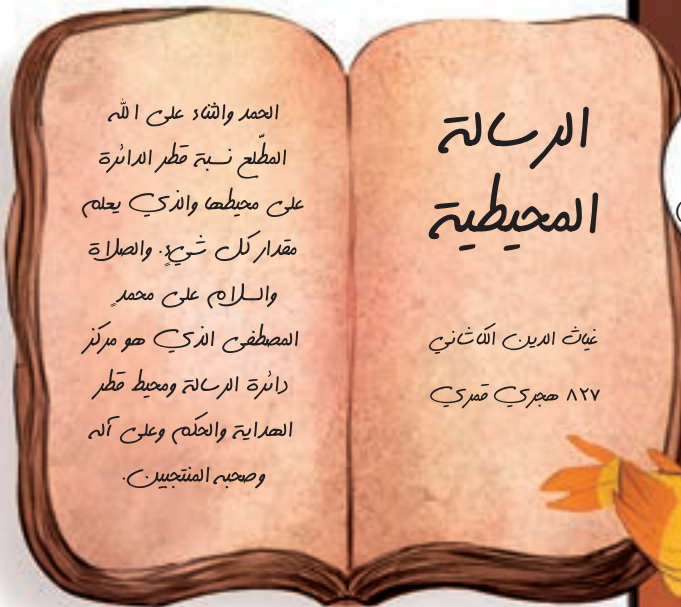 الرسالة
المحيطية
غياث الدين الكاشاني
٨٢٧ هجري قمري
الحمد والثناء على الله
المطّلع نسبة قطر الدائرة
على محيطها والذي يعلم
مقدار كل شيءٍ. والصلاة
والسلام على محمدٍ
المصطفى الذي هو مركز
دائرة الرسالة ومحيط قطر
الهداية والحكم وعلى آله
وصحبه المنتجبين.